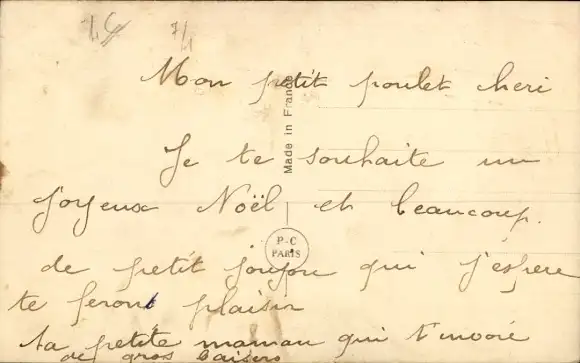 Mon petit poulet cheri
Je te souhaite un
joyeux Noël et beaucoup.
de petit joujou qui j'espere
te feront plaisir
ta petite maman qui t'envoie
de gros baisers
Made in France
P-C
PARIS